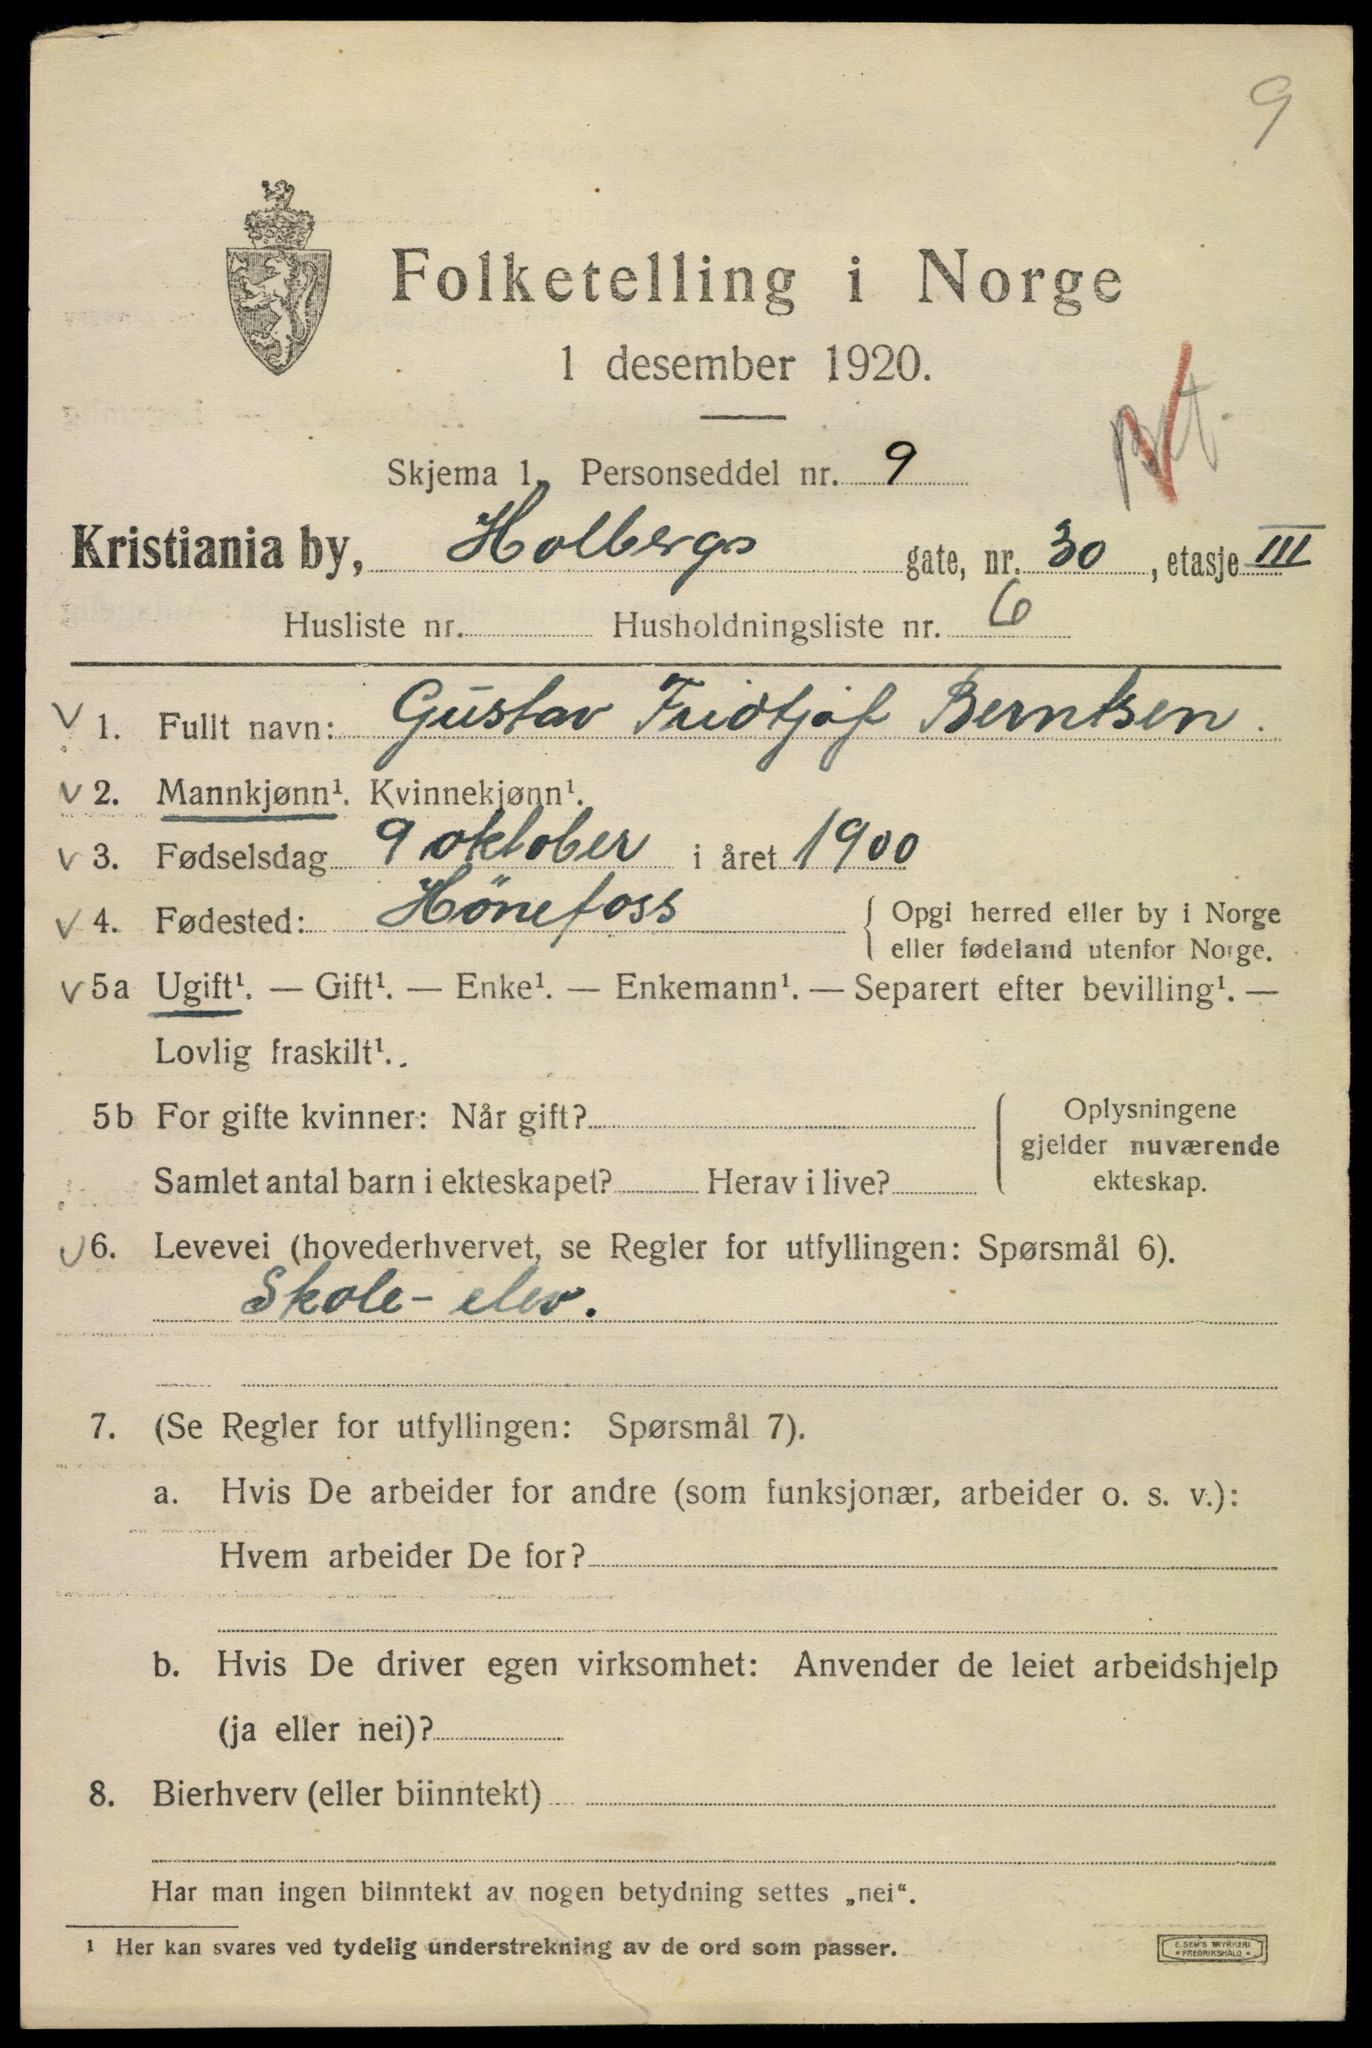 9
Folketelling i Norge
1 desember 1920.
Skjema 1. Personseddel nr. 9
Kristiania by, Holbergs gate, nr. 30, etasje III
Husliste nr. Husholdningsliste nr. 6
1. Fullt navn: Gustav Fridtjof Berntsen.
2. Mannkjønn¹. Kvinnekjønn¹.
3. Fødselsdag 9 oktober i året 1900
4. Fødested: Hönefoss { Opgi herred eller by i Norge
eller fødeland utenfor Norge.
5a Ugift¹. — Gift¹. — Enke¹. — Enkemann¹. — Separert efter bevilling¹. —
Lovlig fraskilt¹.
5b For gifte kvinner: Når gift? Oplysningene
gjelder nuværende
Samlet antal barn i ekteskapet? Herav i live? ekteskap.
6. Levevei (hovederhvervet, se Regler for utfyllingen: Spørsmål 6).
Skole-elev.
7. (Se Regler for utfyllingen: Spørsmål 7).
a. Hvis De arbeider for andre (som funksjonær, arbeider o. s. v.):
Hvem arbeider De for?
b. Hvis De driver egen virksomhet: Anvender de leiet arbeidshjelp
(ja eller nei)?
8. Bierhverv (eller biinntekt)
Har man ingen biinntekt av nogen betydning settes „nei“.
1 Her kan svares ved tydelig understrekning av de ord som passer.
E. SEM'S TRYKKERI
FREDRIKSHALD